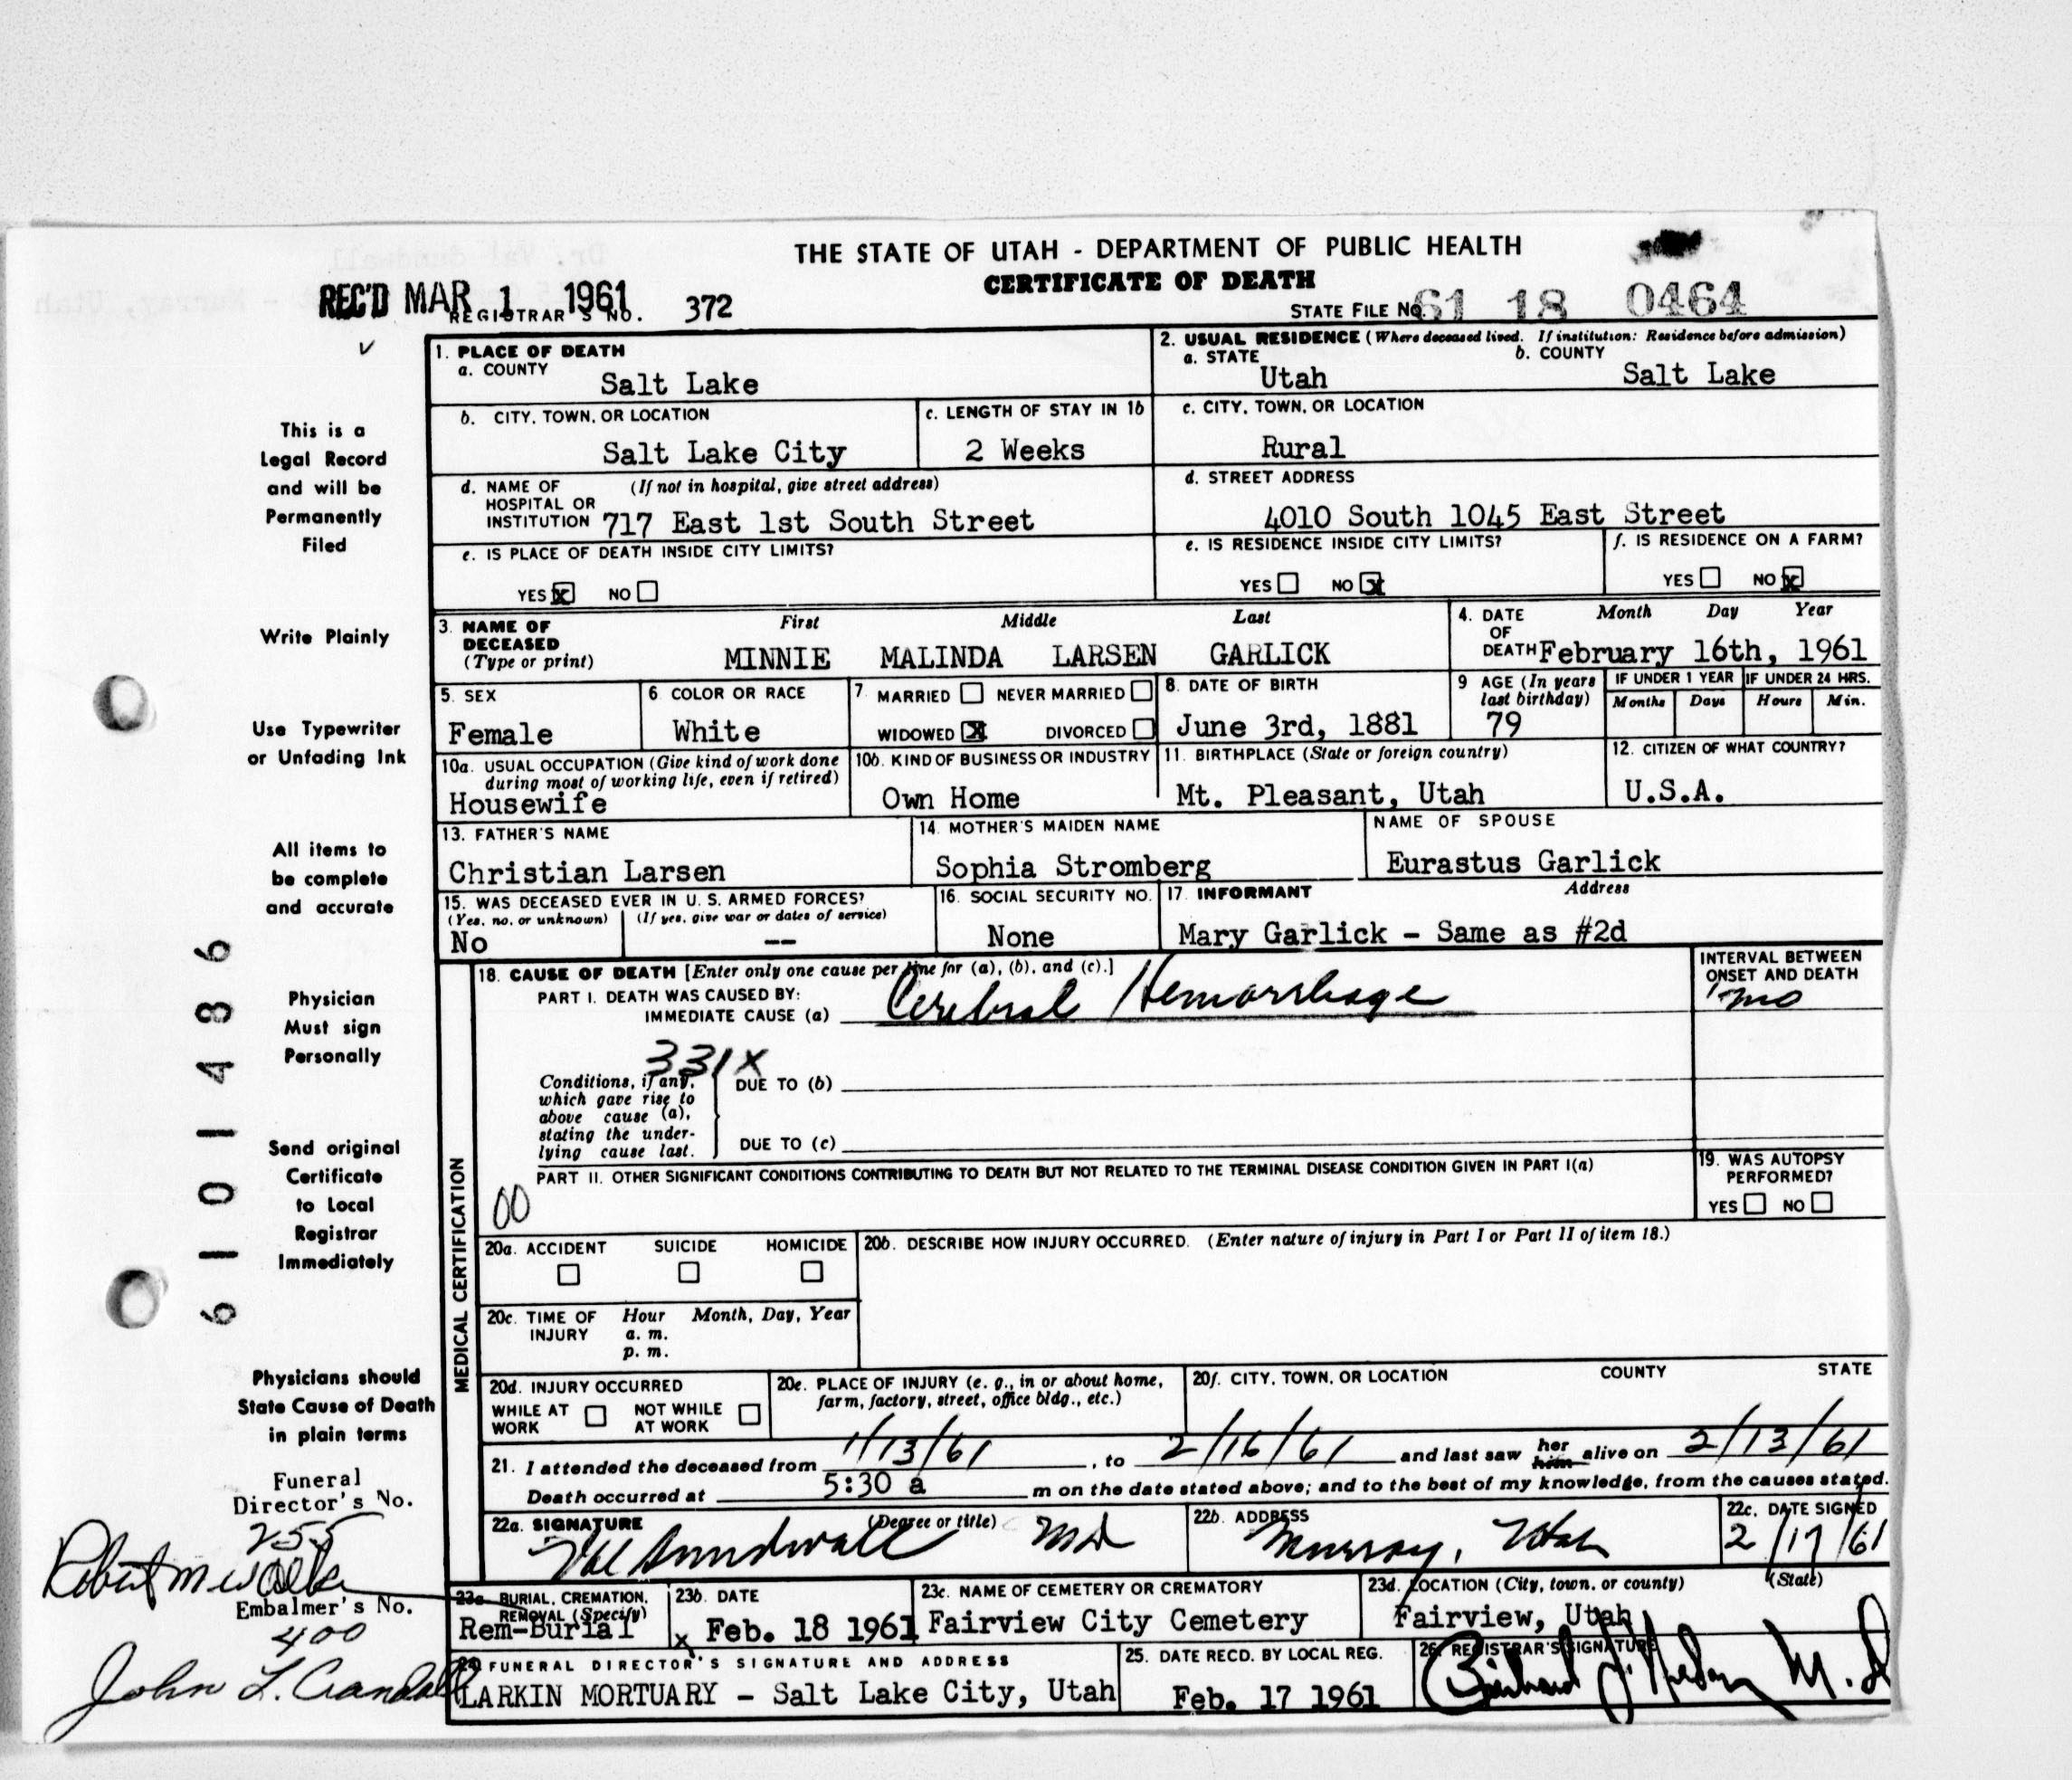 THE STATE OF UTAH - DEPARTMENT OF PUBLIC HEALTH
CERTIFICATE OF DEATH
REC'D MAR 1 1961
REGISTRAR'S NO. 372
STATE FILE NO. 61 18 0464
This is a
Legal Record
and will be
Permanently
Filed
Write Plainly
Use Typewriter
or Unfading Ink
All items to
be complete
and accurate
Physician
Must sign
Personally
Send original
Certificate
to Local
Registrar
Immediately
Physicians should
State Cause of Death
in plain terms
Funeral
Director's No.
255
Embalmer's No.
400
John L. Crandall
6 1 0 1 4 8 6
1. PLACE OF DEATH
a. COUNTY
Salt Lake
2. USUAL RESIDENCE (Where deceased lived. If institution: Residence before admission)
a. STATE b. COUNTY
Utah Salt Lake
b. CITY, TOWN, OR LOCATION
Salt Lake City
c. LENGTH OF STAY IN 1b
2 Weeks
c. CITY, TOWN, OR LOCATION
Rural
d. NAME OF (If not in hospital, give street address)
HOSPITAL OR
INSTITUTION 717 East 1st South Street
d. STREET ADDRESS
4010 South 1045 East Street
e. IS PLACE OF DEATH INSIDE CITY LIMITS?
YES X NO
e. IS RESIDENCE INSIDE CITY LIMITS?
YES NO X
f. IS RESIDENCE ON A FARM?
YES NO X
3. NAME OF
DECEASED
(Type or print)
First Middle Last
MINNIE MALINDA LARSEN GARLICK
4. DATE Month Day Year
OF
DEATH February 16th, 1961
5. SEX
Female
6. COLOR OR RACE
White
7. MARRIED NEVER MARRIED
WIDOWED X DIVORCED
8. DATE OF BIRTH
June 3rd, 1881
9 AGE (In years
last birthday)
79
IF UNDER 1 YEAR IF UNDER 24 HRS.
Months Days Hours Min.
10a. USUAL OCCUPATION (Give kind of work done
during most of working life, even if retired)
Housewife
10b. KIND OF BUSINESS OR INDUSTRY
Own Home
11. BIRTHPLACE (State or foreign country)
Mt. Pleasant, Utah
12. CITIZEN OF WHAT COUNTRY?
U.S.A.
13. FATHER'S NAME
Christian Larsen
14. MOTHER'S MAIDEN NAME
Sophia Stromberg
NAME OF SPOUSE
Eurastus Garlick
15. WAS DECEASED EVER IN U. S. ARMED FORCES?
(Yes, no, or unknown) (If yes, give war or dates of service)
No --
16. SOCIAL SECURITY NO.
None
17. INFORMANT Address
Mary Garlick - Same as #2d
MEDICAL CERTIFICATION
18. CAUSE OF DEATH [Enter only one cause per line for (a), (b), and (c).]
PART I. DEATH WAS CAUSED BY:
IMMEDIATE CAUSE (a) Cerebral Hemorrhage
INTERVAL BETWEEN
ONSET AND DEATH
1 mo
331X
Conditions, if any,
which gave rise to
above cause (a),
stating the under-
lying cause last.
DUE TO (b)
DUE TO (c)
PART II. OTHER SIGNIFICANT CONDITIONS CONTRIBUTING TO DEATH BUT NOT RELATED TO THE TERMINAL DISEASE CONDITION GIVEN IN PART I(a)
00
19. WAS AUTOPSY
PERFORMED?
YES NO
20a. ACCIDENT SUICIDE HOMICIDE
20b. DESCRIBE HOW INJURY OCCURRED. (Enter nature of injury in Part I or Part II of item 18.)
20c. TIME OF Hour Month, Day, Year
INJURY a. m.
p. m.
20d. INJURY OCCURRED
WHILE AT NOT WHILE
WORK AT WORK
20e. PLACE OF INJURY (e. g., in or about home,
farm, factory, street, office bldg., etc.)
20f. CITY, TOWN, OR LOCATION COUNTY STATE
21. I attended the deceased from 1/13/61, to 2/16/61 and last saw her him alive on 2/13/61
Death occurred at 5:30 a m on the date stated above; and to the best of my knowledge, from the causes stated.
22a. SIGNATURE (Degree or title)
Val Sundwall MD
22b. ADDRESS
Murray, Utah
22c. DATE SIGNED
2/17/61
23a. BURIAL, CREMATION,
REMOVAL (Specify)
Rem-Burial
23b. DATE
x Feb. 18 1961
23c. NAME OF CEMETERY OR CREMATORY
Fairview City Cemetery
23d. LOCATION (City, town, or county) (State)
Fairview, Utah
24. FUNERAL DIRECTOR'S SIGNATURE AND ADDRESS
LARKIN MORTUARY - Salt Lake City, Utah
25. DATE RECD. BY LOCAL REG.
Feb. 17 1961
26. REGISTRAR'S SIGNATURE
M.D